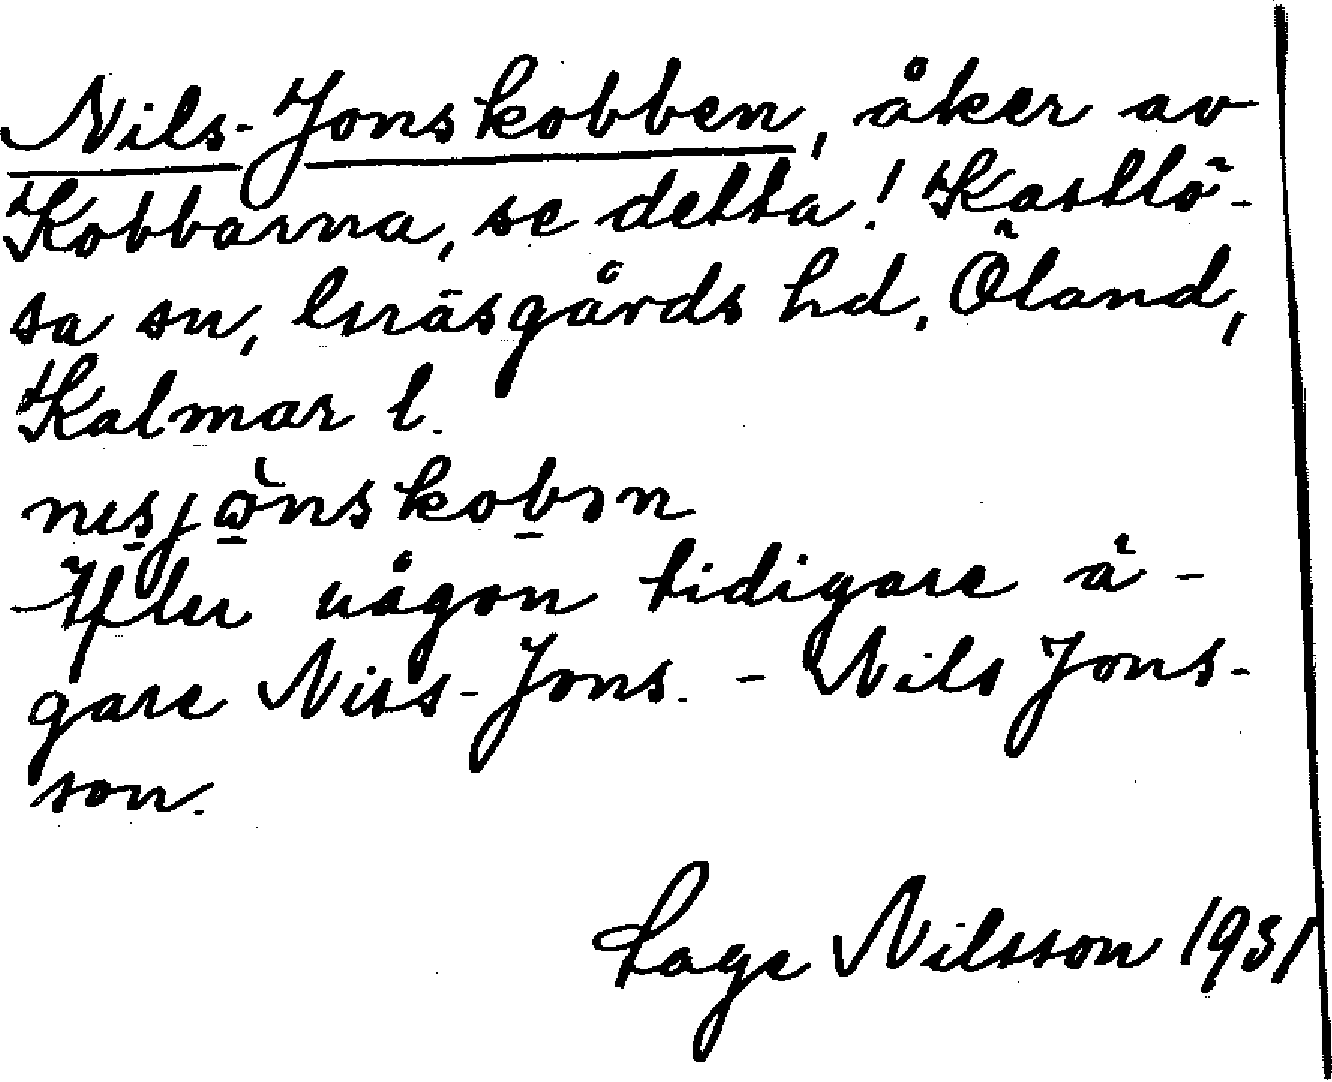 Nils-Jonskobben, åker av
Kobbarna, se detta! Kastlö-
sa sn, Gräsgårds hd, Öland,
Kalmar l.
Efter någon tidigare ä-
gare Niss-Jons. - Nils Jons-
son.
Lage Nilsson 1931